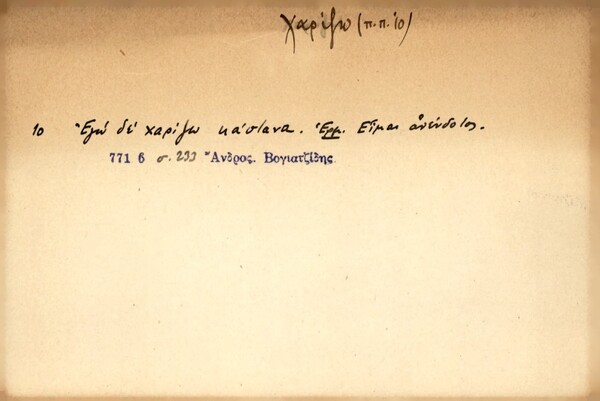 Χαρίζω (π.π. 10)
10 Ἐγὼ δὲ χαρίζω κάστανα. Ἑρμ. Εἶμαι ἀνένδοτος.
771 6 σ. 233 Ἄνδρος. Βογιατζίδης